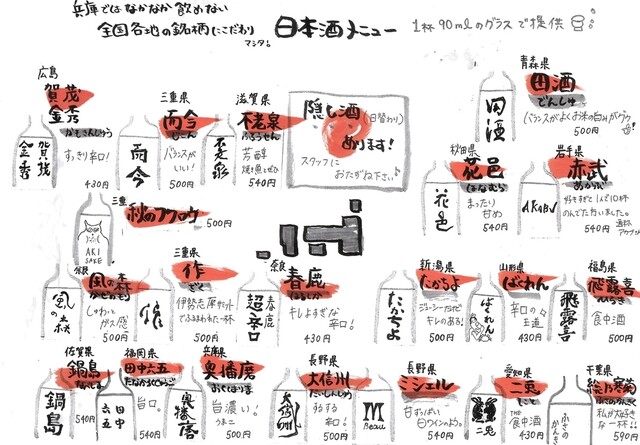 兵庫ではなかなか飲めない
全国各地の銘柄にこだわり
マシタ!
日本酒メニュー
1杯90mlのグラスで提供
広島
賀茂
金秀
かもきんしゅう
すっきり辛口!
430円
賀茂
金秀
三重県
而今
じこん
バランスが
いい!
500円
而今
滋賀県
不老泉
ふろうせん
芳醇
540円
不老泉
隠し酒
(日替わり)
あります!
スタッフに
おたずね下さい。
青森県
田酒
でんしゅ
500円
田酒
秋田県
花邑
はなむら
まったり
甘め
540円
花邑
岩手県
赤武
あかぶ
好きすぎて1人で10杯
のんでた行いました。
540円
AKABU
三重
秋のフクロウ
500円
AKI
SAKE
奈良
風の森
かぜのもり
しゅわっと
ガス感
500円
風の森
三重県
作
ざく
伊勢志摩サミット
でふるまわれた一杯
500円
作
奈良
春鹿
はるしか
キレよすぎな
辛口!
430円
春鹿
超辛口
新潟県
たかちよ
ジューシーだけど
キレのある!
500円
たかちよ
山形県
ばくれん
辛口の
王道
430円
ばくれん
福島県
飛露喜
ひろき
食中酒
500円
飛露喜
佐賀県
鍋島
なべしま
540円
鍋島
福岡県
田中六五
たなかろくじゅうご
旨口。
540円
田中
六五
兵庫県
奥播磨
おくはりま
旨濃い!
500円
奥播磨
長野県
大信州
だいしんしゅう
辛口!
500円
大信州
長野県
ミシェル
甘ずっぱい
白ワインのよう。
540円
M
Beau
愛知県
二兎
にと
THE
食中酒
430円
二兎
千葉県
ふさのかんぎく
私が大好き
な一杯!
540円
ふさの
かんぎく